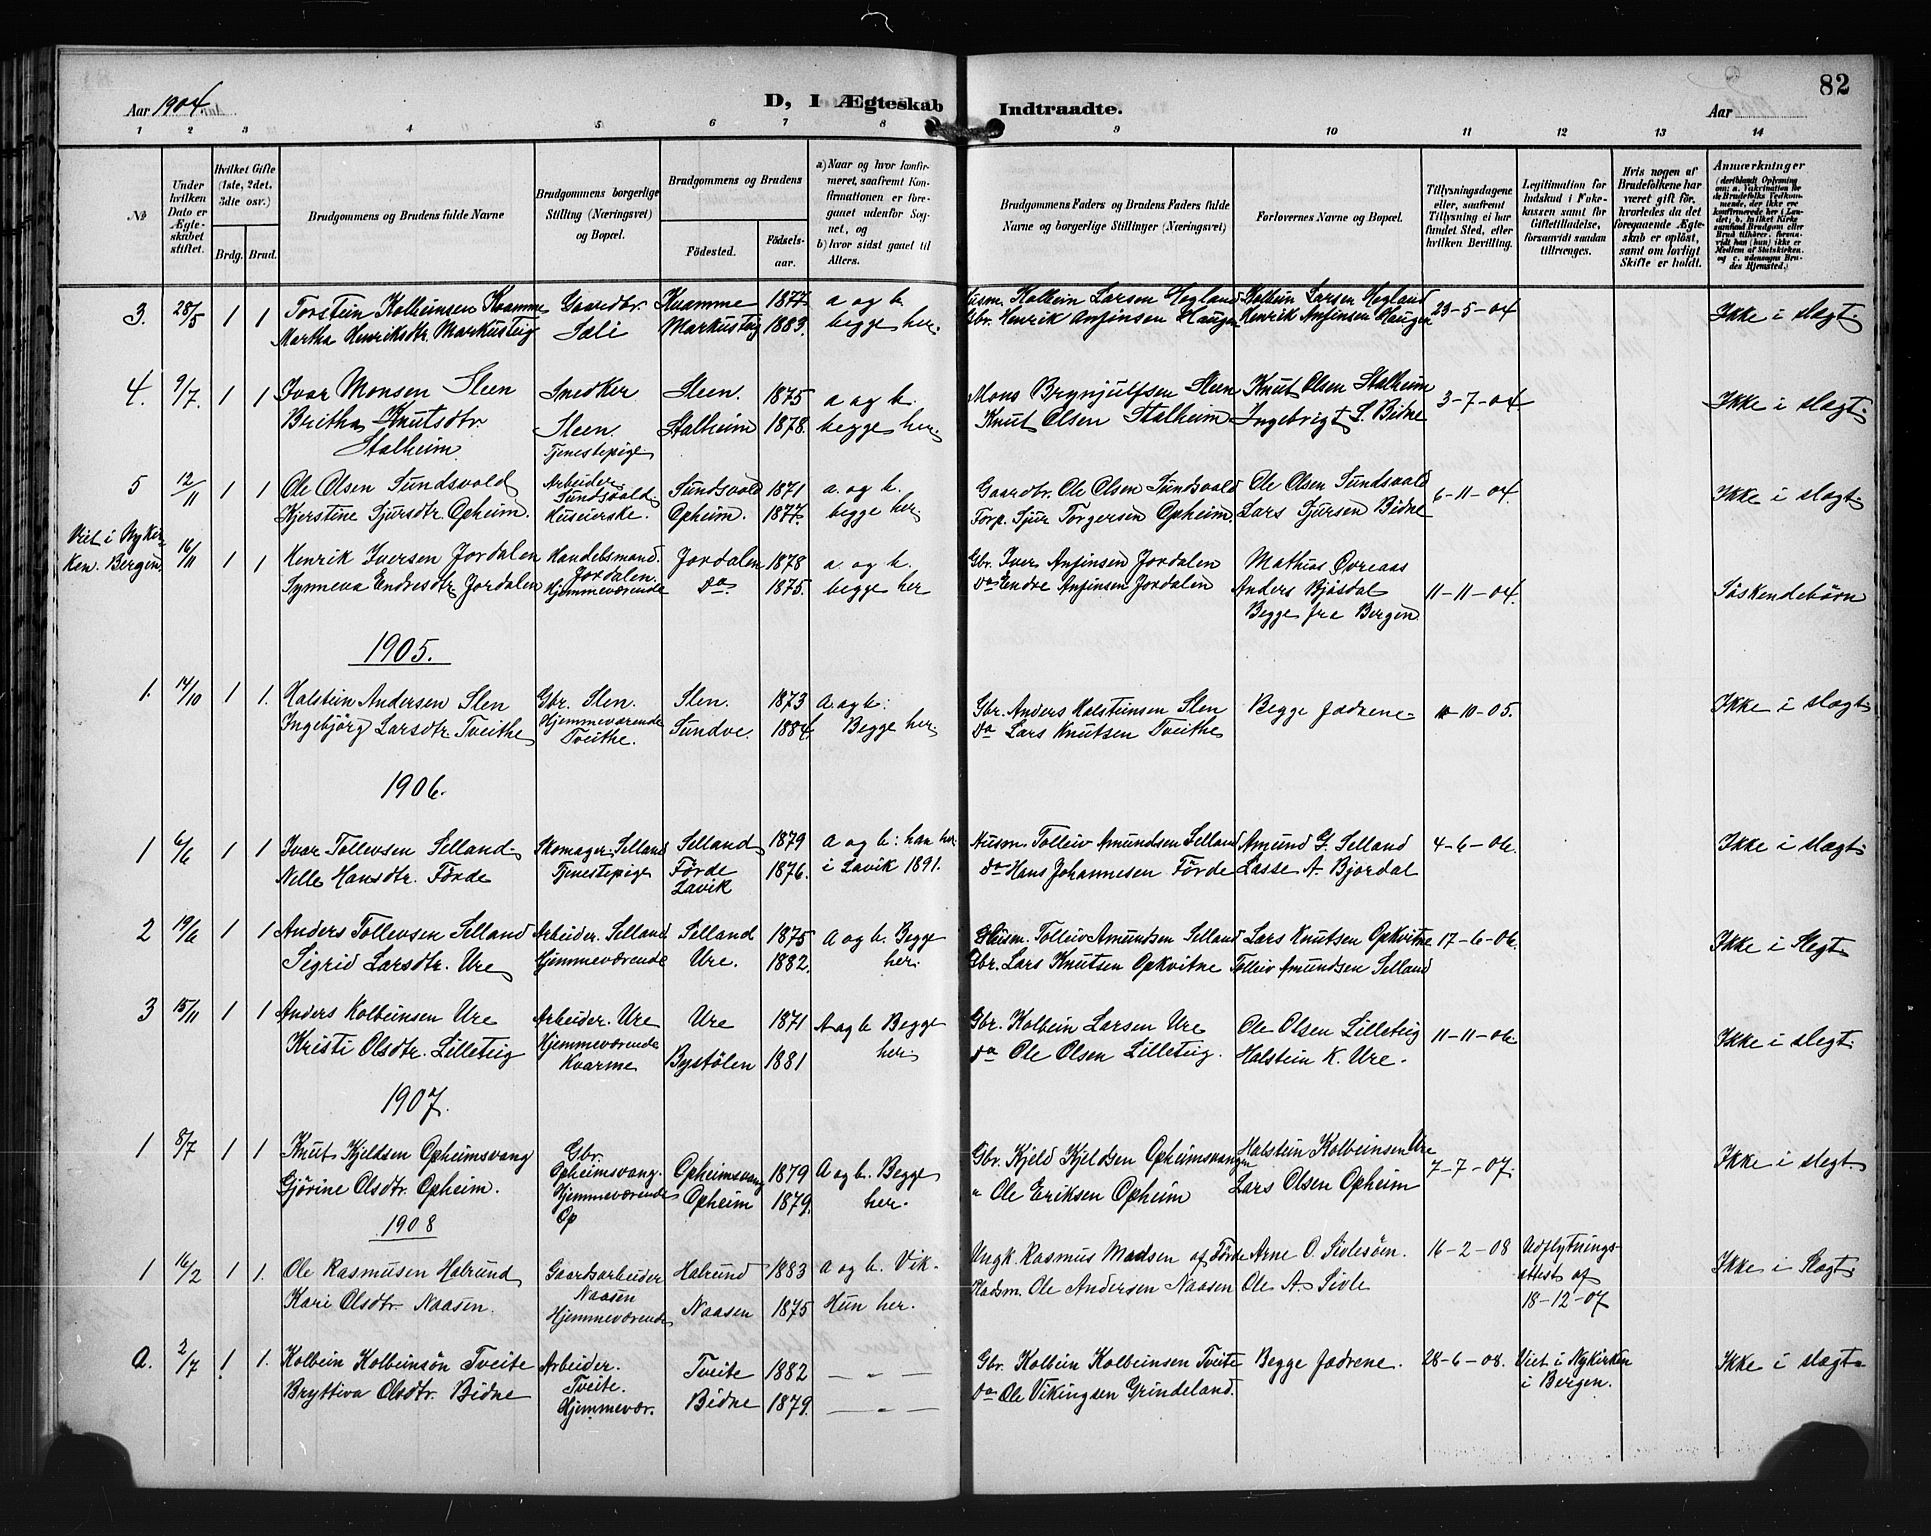 82
Aar 1904. D, I Ægteskab Indtraadte. Aar
1 2 3 4 5 6 7 8 9 10 11 12 13 14
No
Under hvilken Dato er Ægteskabet stiftet.
Hvilket Gifte (1ste, 2det, 3die osv.)
Brdg. Brud.
Brudgommens og Brudens fulde Navne
Brudgommens borgerlige Stilling (Næringsvei) og Bopæl.
Brudgommens og Brudens
Fødested.
Fødselsaar.
a) Naar og hvor konfirmeret, saafremt Konfirmationen er foregaaet udenfor Sognet, og
b) hvor sidst gaaet til Alters.
Brudgommens Faders og Brudens Faders fulde Navne og borgerlige Stillinger (Næringsvei)
Forlovernes Navne og Bopæl.
Tillysningsdagene eller, saafremt Tillysning ei har fundet Sted, efter hvilken Bevilling.
Legitimation for Indskud i Fakekassen samt for Giftetilladelse, forsaavidt saadan tiltrænges.
Hvis nogen af Brudefolkene har været gift før, hvorledes da det foregaaende Ægteskab er opløst, samt om lovligt Skifte er holdt.
Anmærkninger
3. 28/5 1 1 Torstein Kolbeinsen Kvamme Gaardbr. Kvamme 1877 a og b. Husm. Kolbein Larsen Hogland Kolbein Larsen Hogland 23-5-04 Ikke i slægt.
Martha Henriksdtr. Markusteig Sali Markusteig 1883. begge her. Gbr. Henrik Anfinsen Haugen Henrik Anfinsen Haugen
4. 9/7. 1 1 Ivar Monsen Sleen Snedker Sleen. 1875 a og b. Mons Brynjulfsen Sleen Knut Olsen Stalheim 3-7-04 Ikke i slægt.
Britha Knutsdtr. Sleen. Stalheim 1878. begge her. Knut Olsen Stalheim Ingebrigt S. Bidne
Stalheim. Tjenestepige
5 12/11 1 1 Ole Olsen Sundsvold Arbeider Sundsvold 1871 a. og b. Gaardbr. Ole Olsen Sundsvold Ole Olsen Sundsvold 6-11-04. Ikke i slægt.
Sundsvold.
Kjerstine Sjursdtr. Opheim. Huseierske. Opheim. 1877. begge her. Forp. Sjur Torgersen Opheim. Lars Sjursen Bidne
Viet i Nykirken. Bergen.
16/11 1 1 Henrik Iversen Jordalen Handelsmand. Jordalen 1878 a og b. Gbr. Iver Anfinsen Jordalen Mathias Øvreaas
Jordalen.
Synneva Endresdtr. Jordalen Hjemmeværende do 1875. begge her do Endre Anfinsen Jordalen Anders Bjösdal 11-11-04. Søskendebørn
Begge fra Bergen
1905.
1. 14/10 1 1. Halstein Andersen Slen Gbr. Slen. Slen. 1873 A. og b. Gbr. Anders Halsteinsen Slen Begge Fædrene. 10-05. Ikke i slægt.
Ingebjörg Larsdtr. Tveithe Hjemmeværende Sundve. 1884. Begge her do Lars Knutsen Tveithe
Tveithe.
1906.
1 6/6 1 1 Ivar Tollevsen Selland. Skomager. Selland Selland 1879 a og b: han her Husm. Tolleiv Amundsen Selland Amund G. Selland 4-6-06. Ikke i slægt.
Nelle Hansdtr. Förde Tjenestepige Förde 1876. i Lavik 1891. do Hans Johannesen Förde Lasse A. Bjordal
Lavik
2 19/6 1 1 Anders Tollevsen Selland Arbeider. Selland Selland 1875 A og b. Begge Husm. Tolleiv Amundsen Selland. Lars Knutsen Opkvitne 17-6-06. Ikke i Slegt
Sigrid Larsdtr. Ure Hjemmeværende Ure. 1882. her. Gbr. Lars Knutsen Opkvitne Tolleiv Amundsen Selland
3 15/11 1 1 Anders Kolbeinsen Ure Arbeider. Ure Ure 1871 A og b Begge Gbr. Kolbein Larsen Ure Ole Olsen Lilleteig 11-11-06. Ikke i slegt.
Kristi Olsdtr. Lilleteig Hjemmeværende Bystölen 1881 her do Ole Olsen Lilleteig. Halstein K. Ure.
Kvarme
1907.
1 8/7 1 1. Knut Kjeldsen Opheimsvang Gbr. Opheimsvang 1879 A og b. Begge Gbr. Kjeld Kjeldsen Opheimsvangen Halstein Kolbeinsen Ure 7-7-07. Ikke i slegt
Opheimsvang.
Gjörine Olsdtr. Opheim. Hjemmeværende Opheim 1879. her. " Ole Eriksen Opheim Lars Olsen Opheim
Op
1908
1 16/2 1 1. Ole Rasmusen Halrund Gaardsarbeider Halrund 1883 A og b. Vik. Ungk. Rasmus Madsen af Förde Arne O. Sivlesöen. 16-2-08 Udflytnings- Ikke i Slægt.
Naasen attest af
Kari Olsdtr. Naasen. Hjemmeværende Naasen 1875 Hun her. Ole Andersen Naasen Ole A. Sivle 18-12-07
2. 2/7 1. 1. Kolbein Kolbeinsön Tveite Arbeider. Tveite 1882 — " — Gbr. Kolbein Kolbeinsen Tveite Begge Fædrene. 28-6-08. Viet i Nykirken Ikke i slægt
Tveite. i Bergen.
Bryttiva Olsdtr. Bidne Hjemmevær. Bidne 1879. — " — do Ole Vikingsen Grindeland.